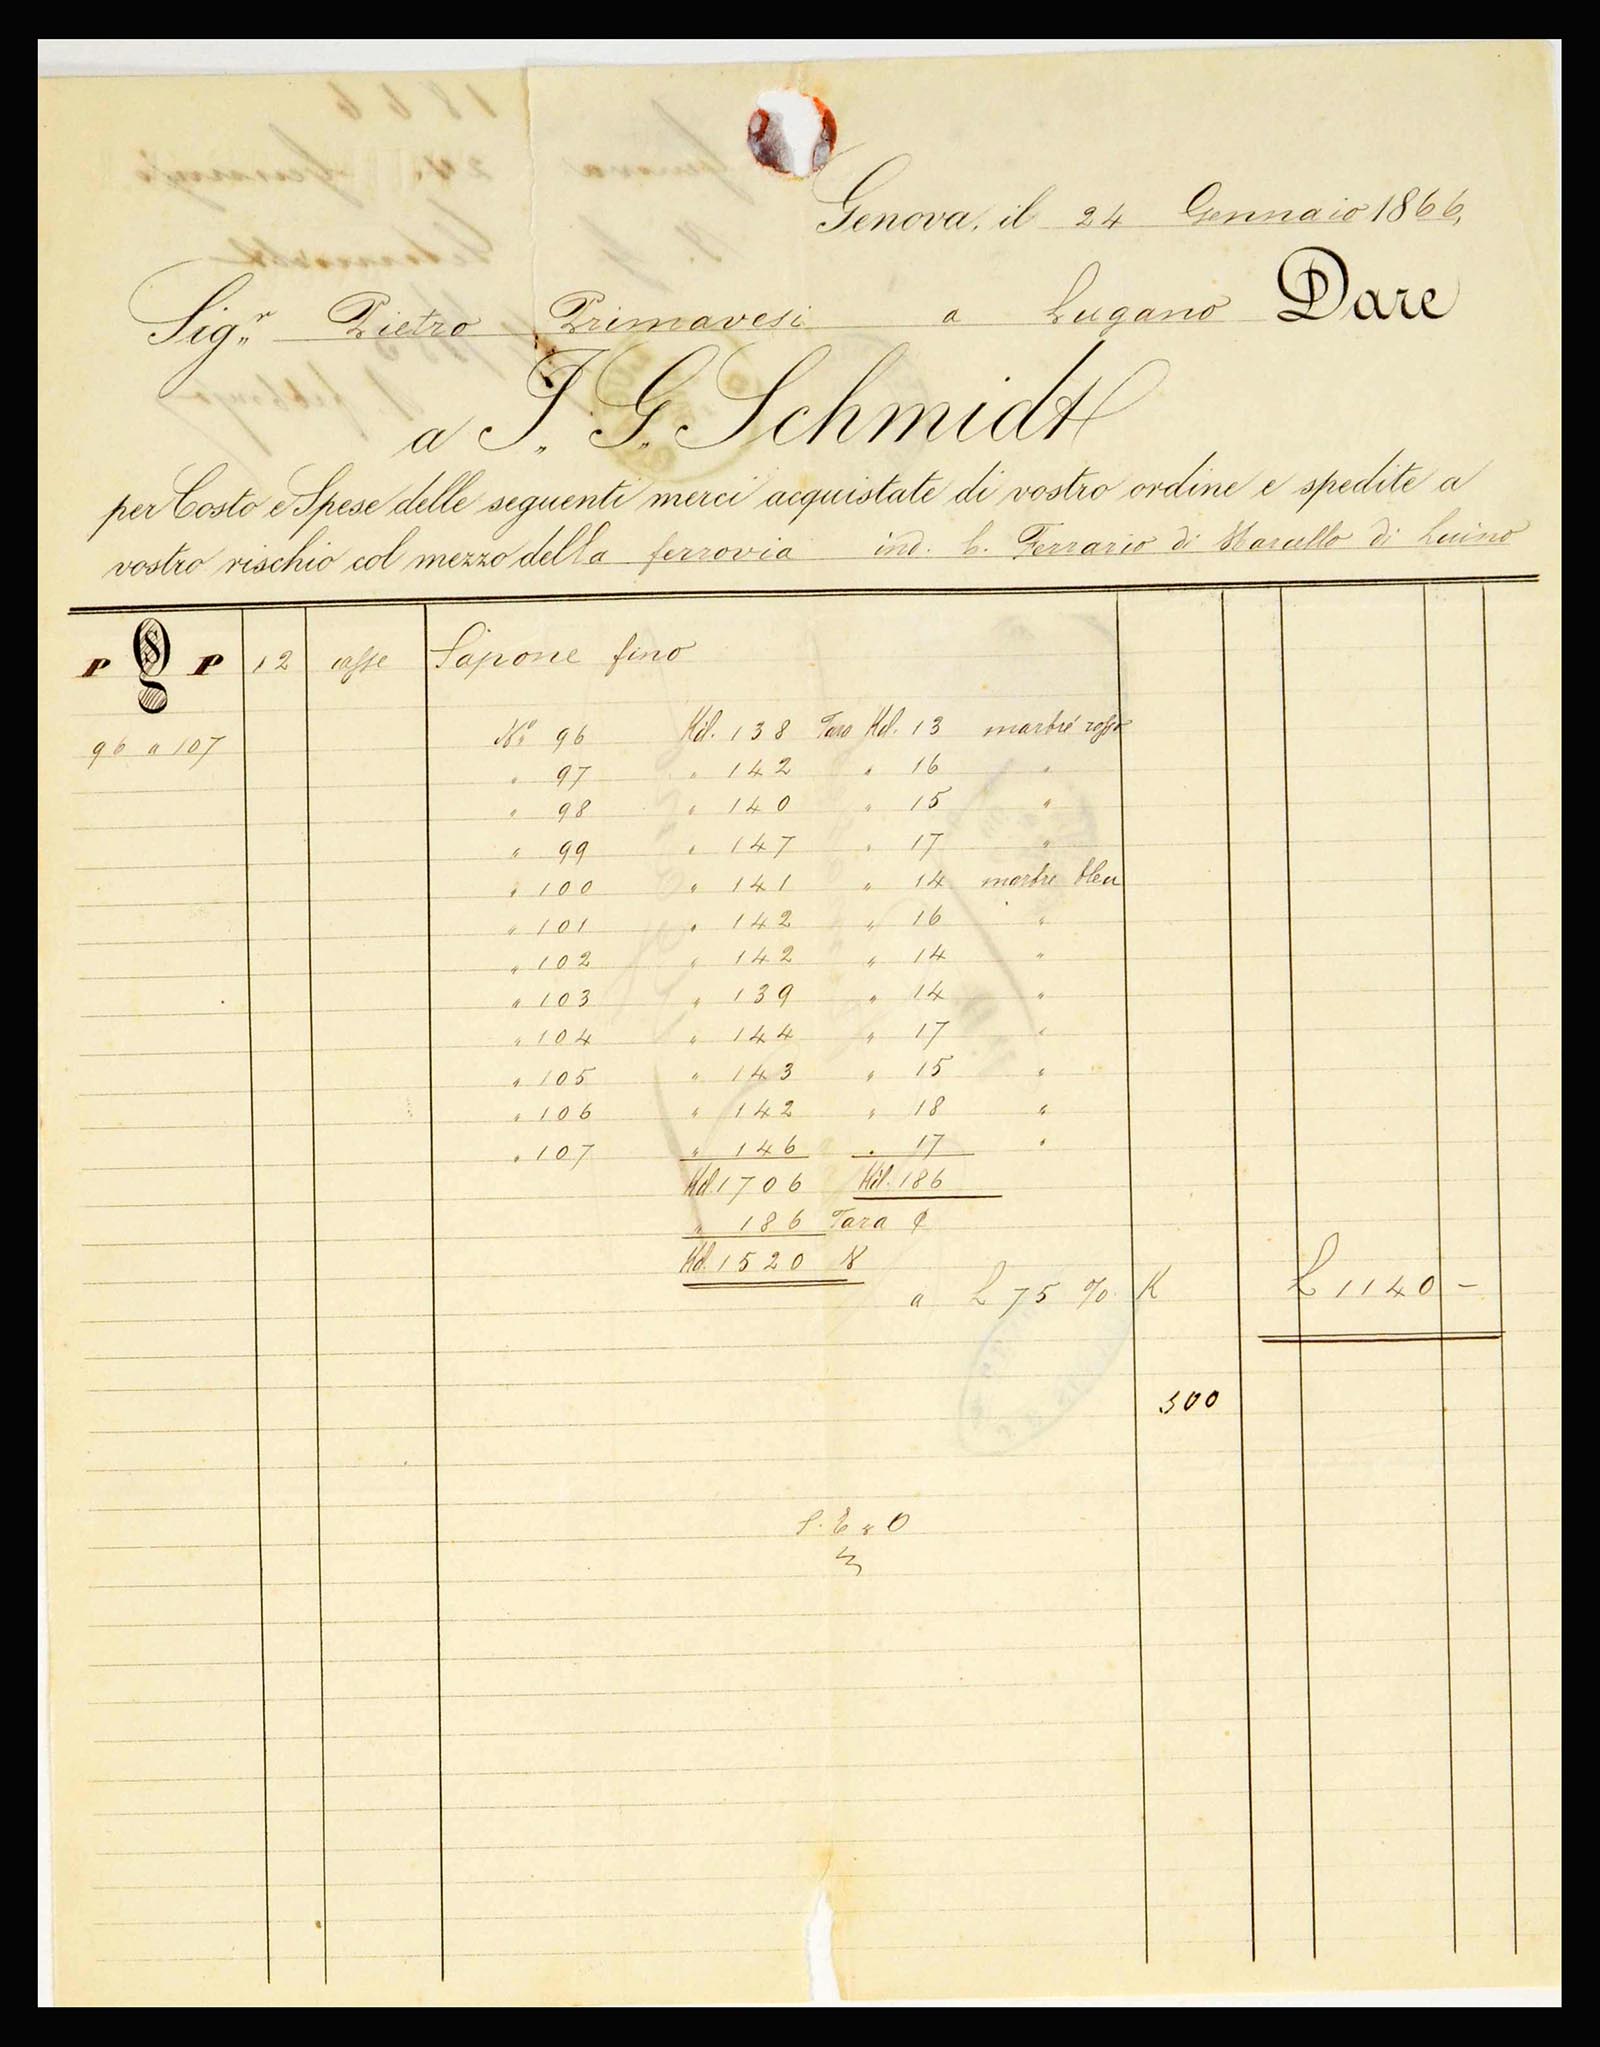 Genova, il 24 Gennaio 1866,
Sig.r Pietro Primavesi a Lugano Dare
a J. G. Schmidt
per Costo e Spese delle seguenti merci acquistate di vostro ordine e spedite a
vostro rischio col mezzo della ferrovia ind. L. Ferrario di Marcello di Luino
P P 12 casse Sapone fino
96 a 107
No 96 Kil. 138 Tara Kil. 13 marbré rosso
" 97 " 142 " 16 "
" 98 " 140 " 15 "
" 99 " 147 " 17 "
" 100 " 141 " 14 marbre bleu
" 101 " 142 " 16 "
" 102 " 142 " 14 "
" 103 " 139 " 14 "
" 104 " 144 " 17 "
" 105 " 143 " 15 "
" 106 " 142 " 18 "
" 107 " 146 " 17 "
Kil. 1706 Kil. 186
" 186 Tara
Kil. 1520 N
a L 75 % K L 1140 -
300
S. E. & O